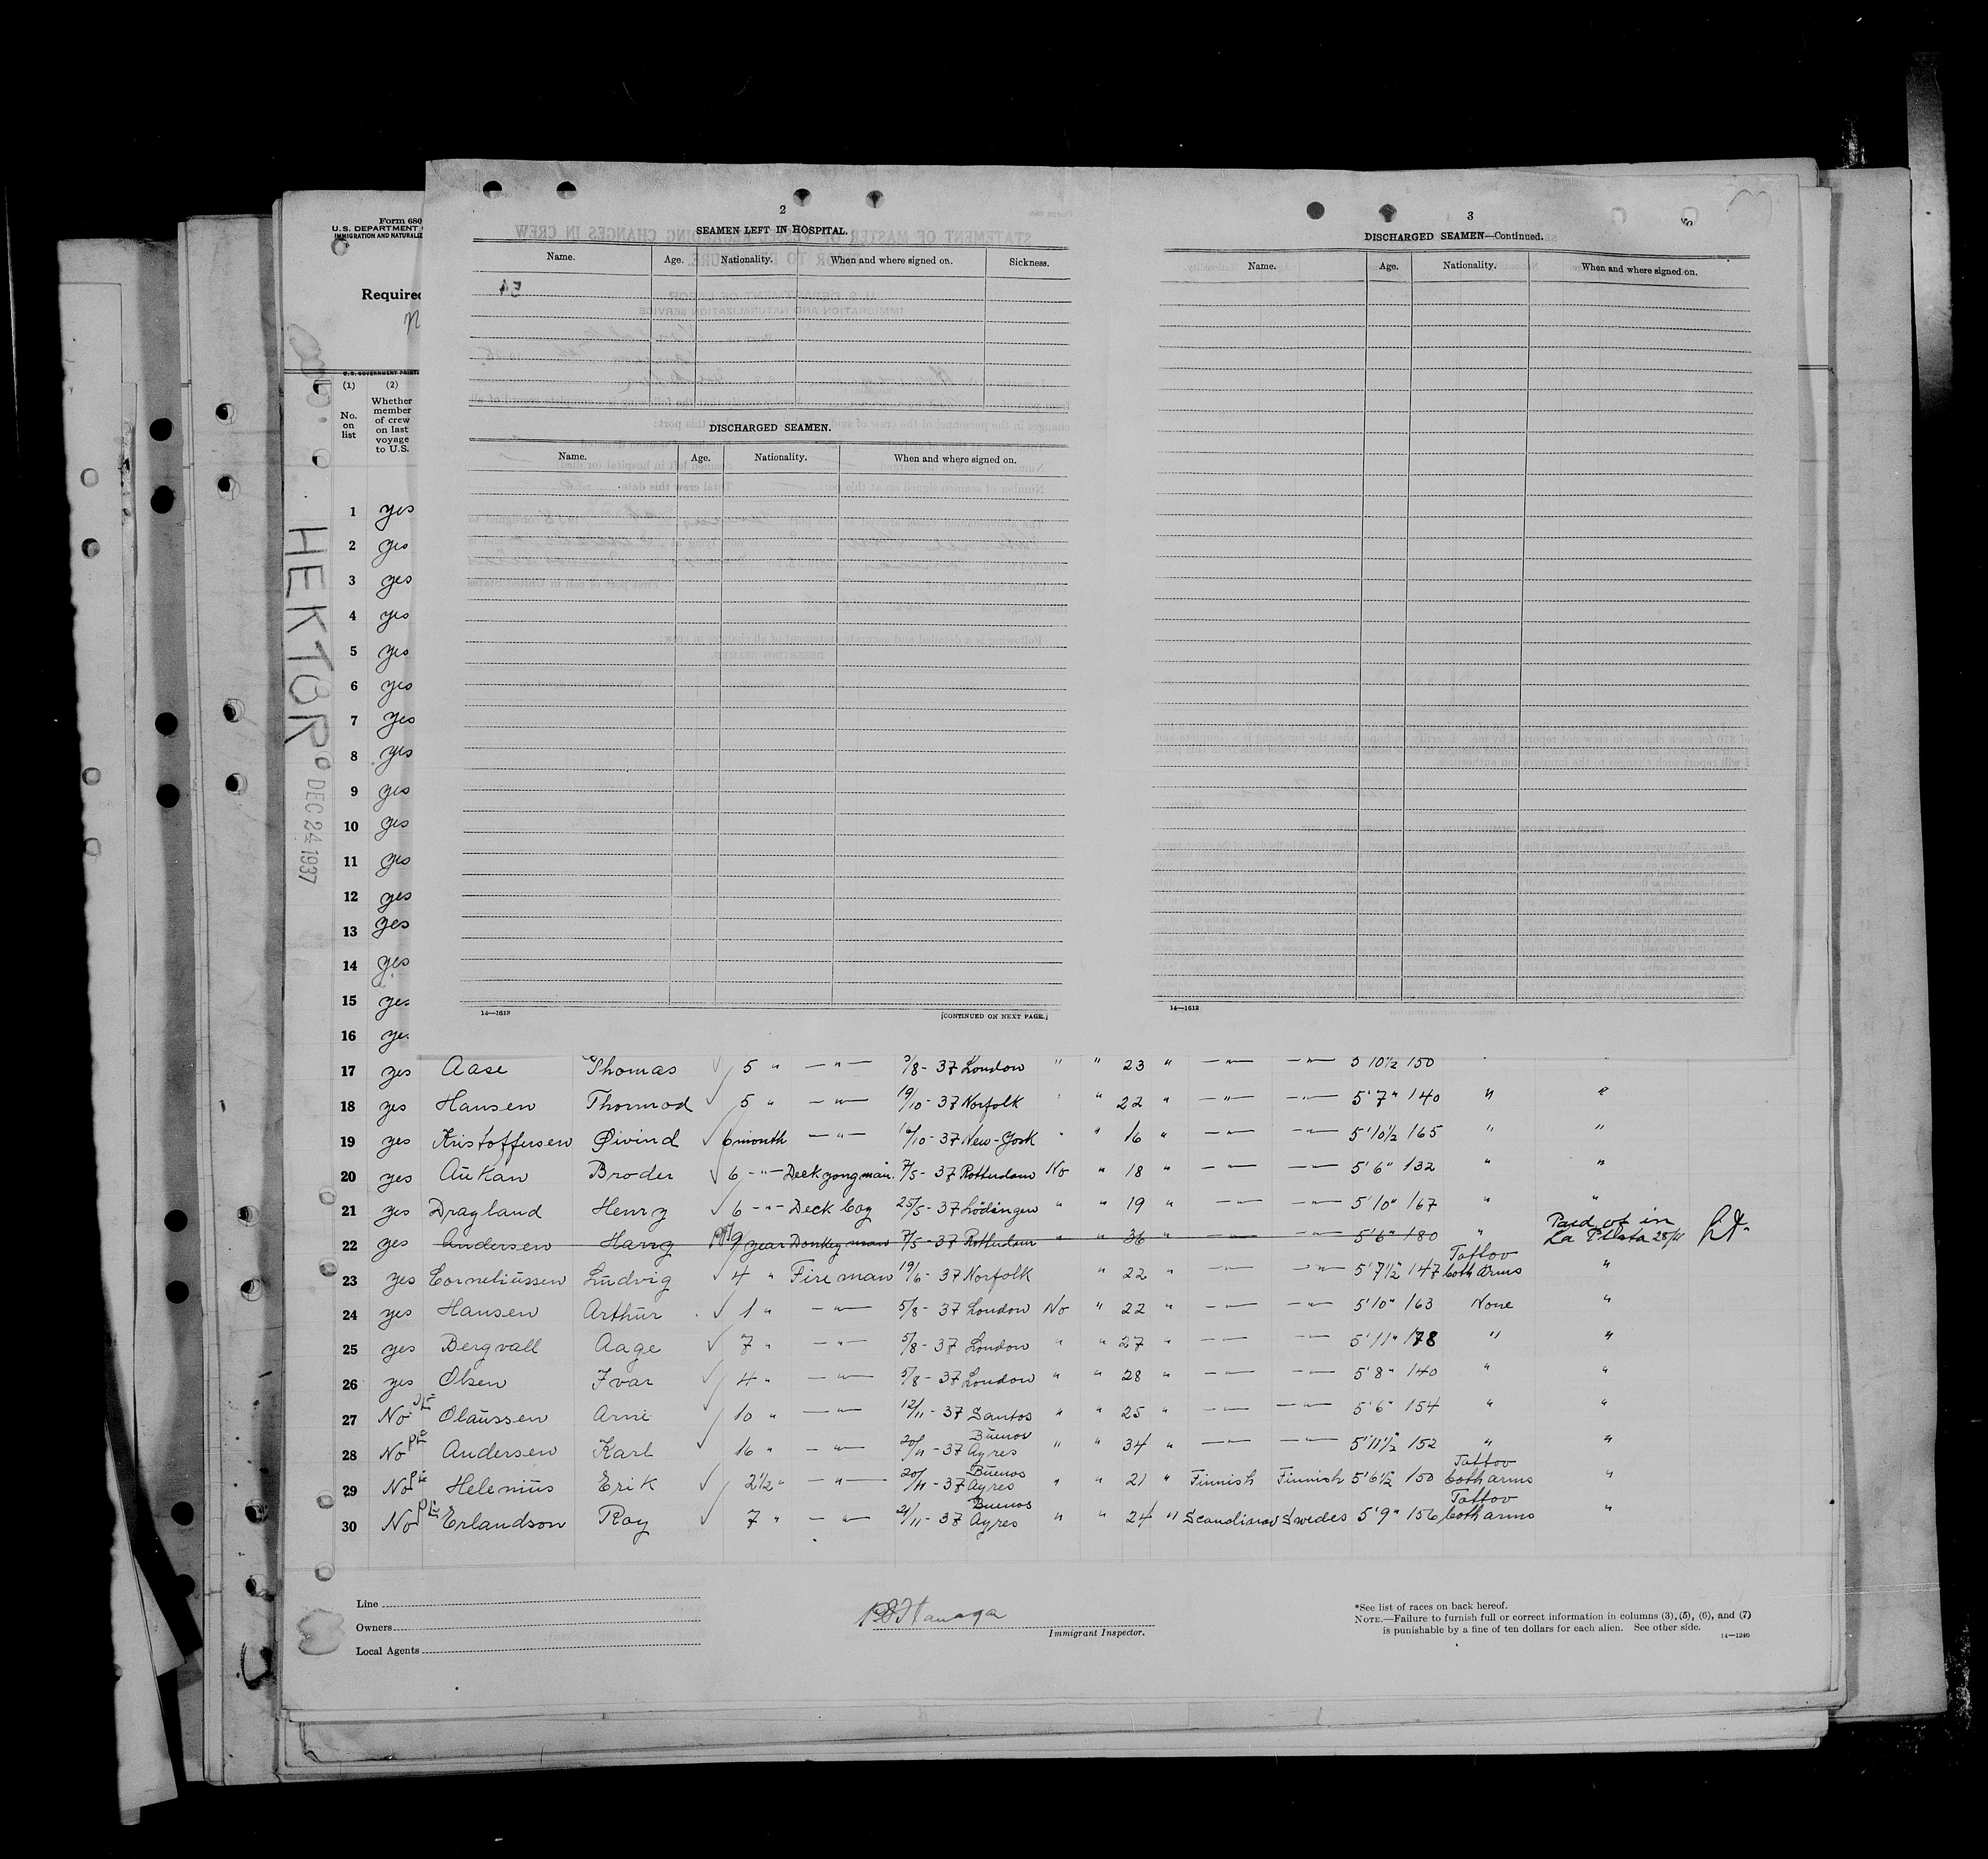 Form 680
U.S. DEPARTMENT
IMMIGRATION AND NATURALIZ
Required
U.S. GOVERNMENT PRINT
(1) (2)
No. on list
Whether member of crew on last voyage to U.S.
HEKTOR
DEC 24 1937
2
SEAMEN LEFT IN HOSPITAL.
Name. Age. Nationality. When and where signed on. Sickness.
DISCHARGED SEAMEN.
Name. Age. Nationality. When and where signed on.
14—1613 [CONTINUED ON NEXT PAGE.]
3
DISCHARGED SEAMEN—Continued.
Name. Age. Nationality. When and where signed on.
14—1613
1 yes
2 yes
3 yes
4 yes
5 yes
6 yes
7 yes
8 yes
9 yes
10 yes
11 yes
12 yes
13 yes
14 yes
15 yes
16 yes
17 yes Aase Thomas 5 " —"— /8-37 London " " 23 " —"— —"— 5 10½ 150
18 yes Hansen Thormod 5 " —"— 19/10-37 Norfolk " " 22 " —"— —"— 5'7" 140 " "
19 yes Kristoffersen Øivind 6 month —"— /10-37 New-York " " 16 " —"— —"— 5'10½ 165 " "
20 yes Aukan Broder 6 —"— Deck yongman 7/5-37 Rotterdam No " 18 " —"— —"— 5'6" 132 " "
21 yes Dragland Henry 6 —"— Deck boy 25/5-37 Lödingen " " 19 " —"— —"— 5'10" 167 " "
22 yes Andersen Harry 9 year Donkey man 7/5-37 Rotterdam " " 36 " —"— —"— 5'6" 180 " Paid of in La Plata 28/11
23 yes Corneliussen Ludvig 4 " Fire man 19/6-37 Norfolk " 22 " —"— —"— 5'7½" 147 Tattov both arms "
24 yes Hansen Arthur 1 " —"— 5/8-37 London No " 22 " —"— —"— 5'10" 163 None "
25 yes Bergvall Aage 7 " —"— 5/8-37 London " " 27 " —"— —"— 5'11" 178 " "
26 yes Olsen Ivar 4 " —"— 5/8-37 London " " 28 " —"— —"— 5'8" 140 " "
27 No Olaussen Arne 10 " —"— 12/11-37 Santos " " 25 " —"— —"— 5'6" 154 " "
28 No PE Andersen Karl 16 " —"— 20/11-37 Buenos Ayres " " 34 " —"— —"— 5'11½" 152 " "
29 No PE Helenius Erik 2½ " —"— 20/11-37 Buenos Ayres " " 21 " Finnish Finnish 5'6½ 150 Tattov both arms "
30 No PE Erlandson Roy 7 " —"— 21/11-37 Buenos Ayres " " 24 " Scandinav Swedes 5'9" 156 Tattov both arms "
Line
Owners
Local Agents
Immigrant Inspector.
*See list of races on back hereof.
NOTE.—Failure to furnish full or correct information in columns (3), (5), (6), and (7)
is punishable by a fine of ten dollars for each alien. See other side.
14—1240